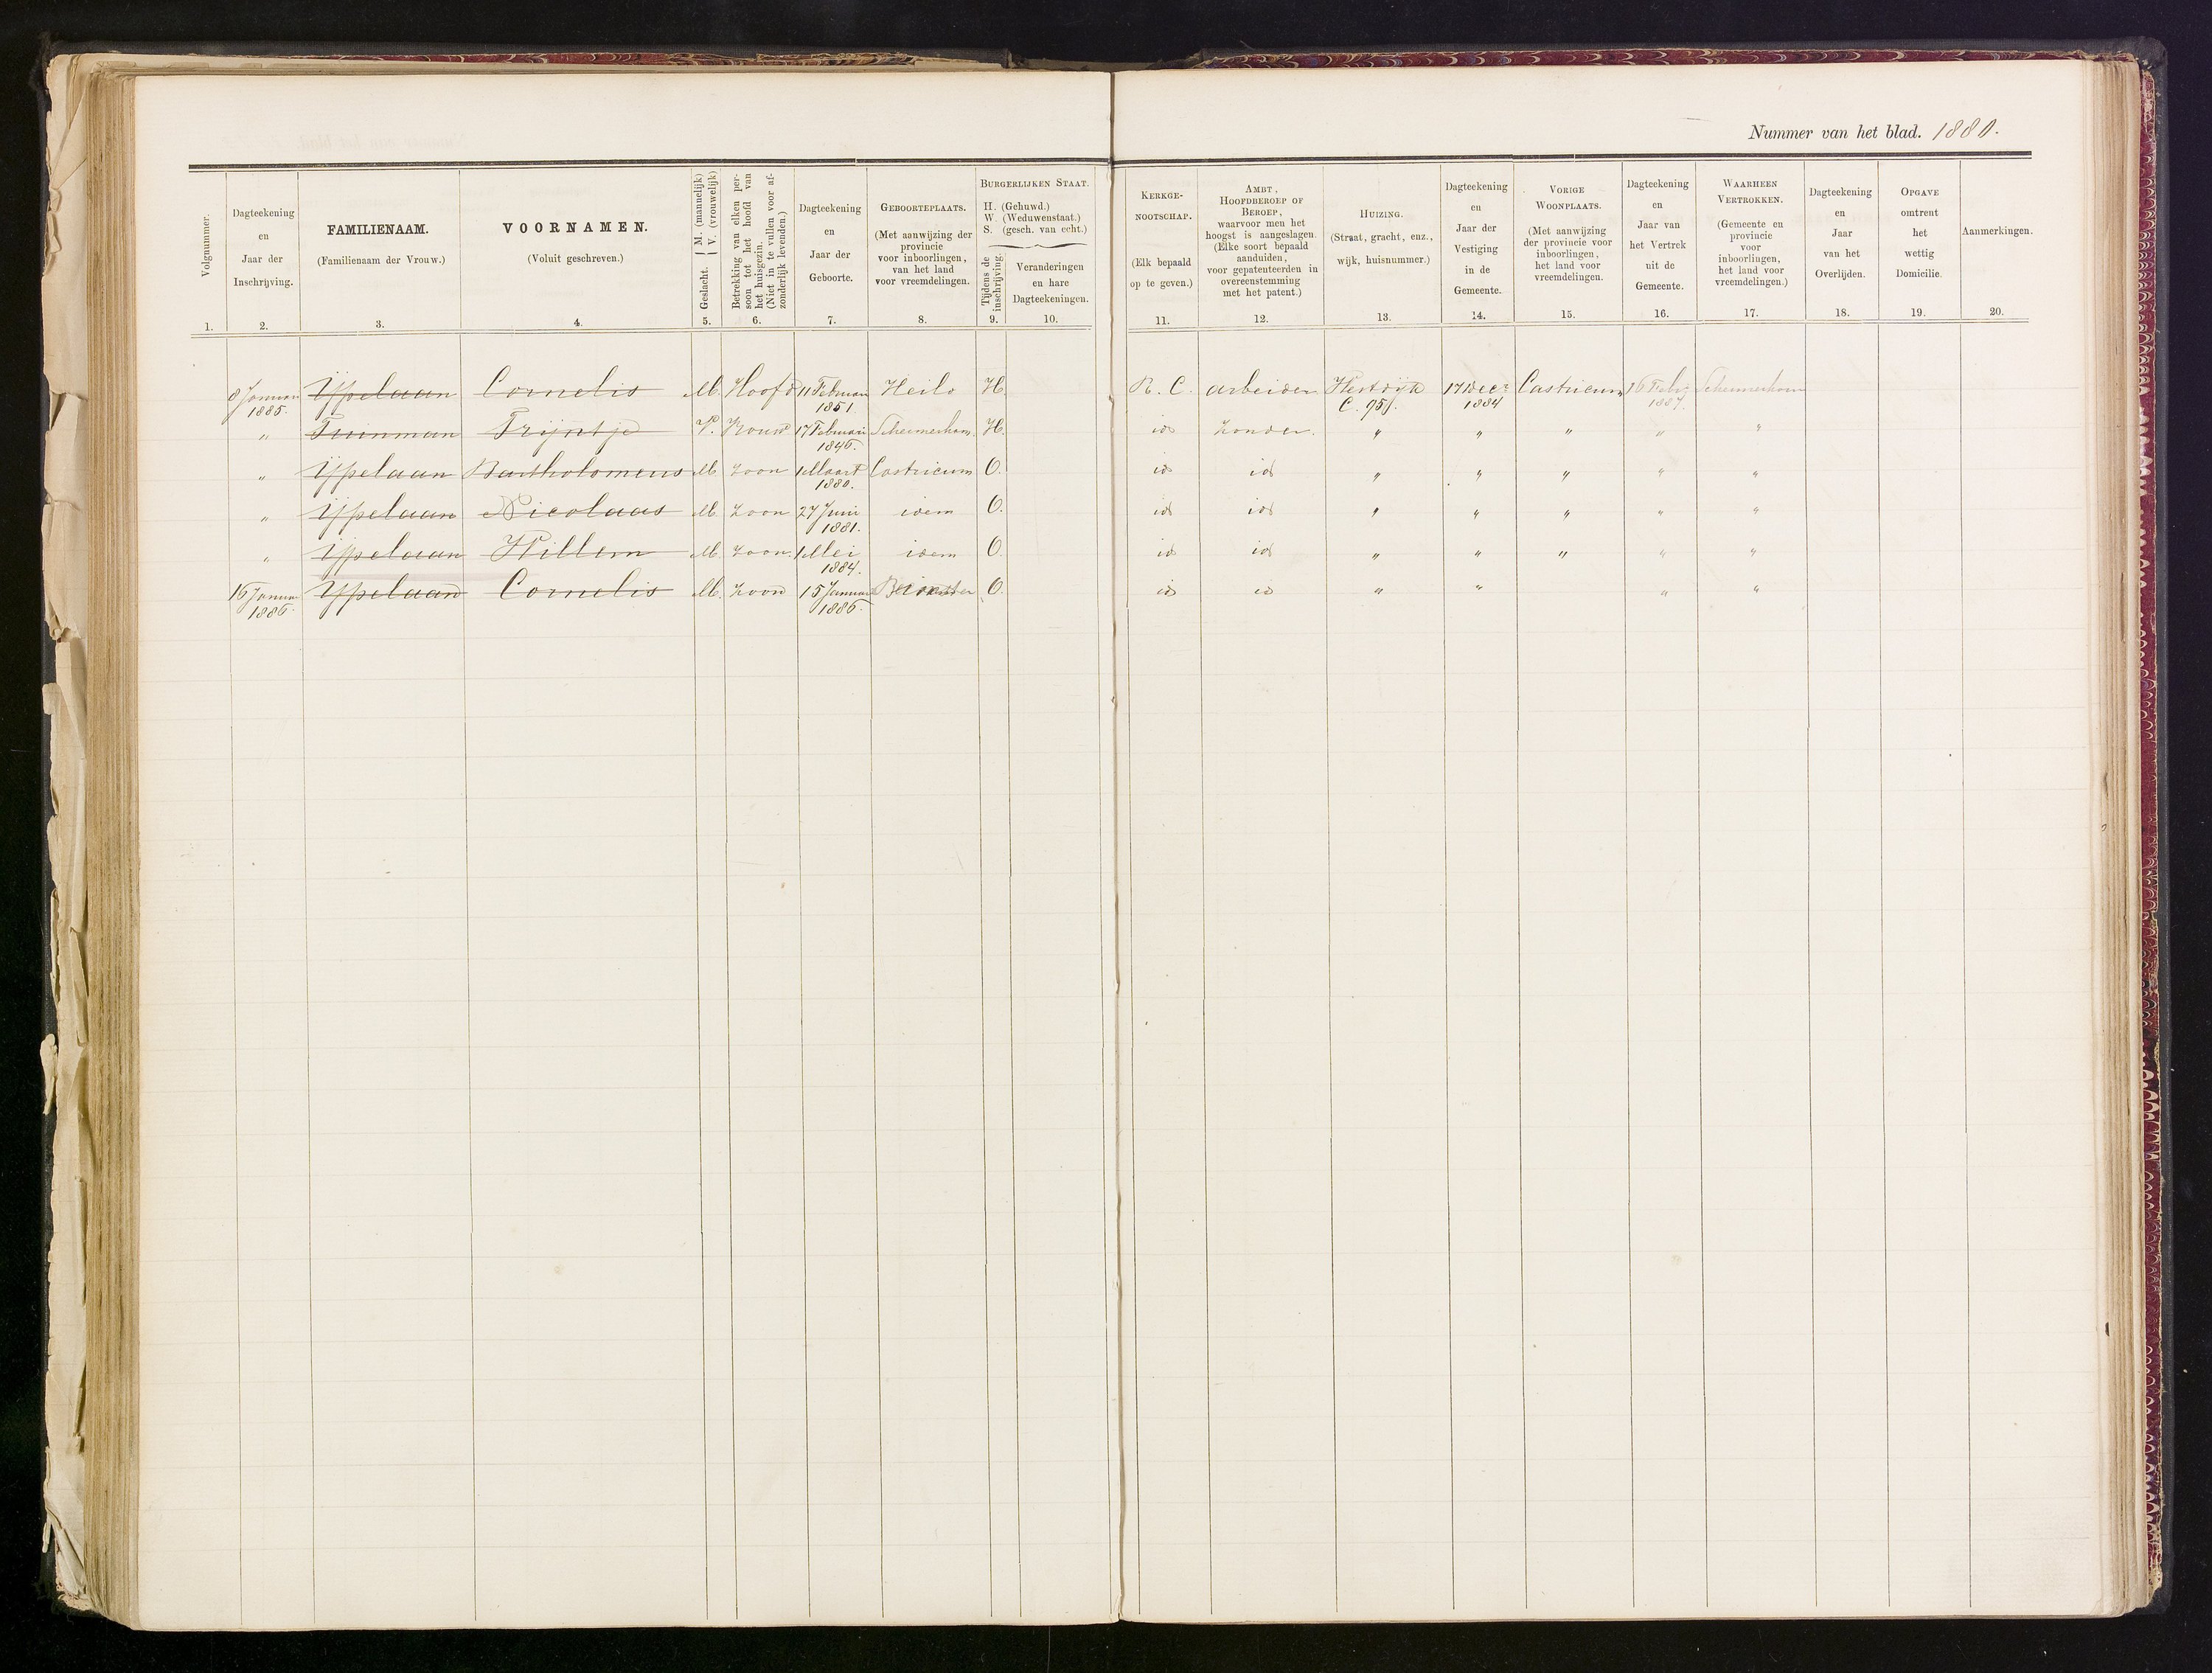 Nummer van het blad. 1880.
Volgnummer.
Dagteekening en Jaar der Inschrijving.
FAMILIENAAM. (Familienaam der Vrouw.)
VOORNAMEN. (Voluit geschreven.)
Geslacht. { M. (mannelijk) V. (vrouwelijk)
Betrekking van elken persoon tot het hoofd van het huisgezin. (Niet in te vullen voor afzonderlijk levenden.)
Dagteekening en Jaar der Geboorte.
GEBOORTEPLAATS. (Met aanwijzing der provincie voor inboorlingen, van het land voor vreemdelingen.)
BURGERLIJKEN STAAT. H. (Gehuwd.) W. (Weduwenstaat.) S. (gesch. van echt.)
Tijdens de inschrijving.
Veranderingen en hare Dagteekeningen.
KERKGENOOTSCHAP. (Elk bepaald op te geven.)
AMBT, HOOFDBEROEP OF BEROEP, waarvoor men het hoogst is aangeslagen. (Elke soort bepaald aanduiden, voor gepatenteerden in overeenstemming met het patent.)
HUIZING. (Straat, gracht, enz., wijk, huisnummer.)
Dagteekening en Jaar der Vestiging in de Gemeente.
VORIGE WOONPLAATS. (Met aanwijzing der provincie voor inboorlingen, het land voor vreemdelingen.)
Dagteekening en Jaar van het Vertrek uit de Gemeente.
WAARHEEN VERTROKKEN. (Gemeente en provincie voor inboorlingen, het land voor vreemdelingen.)
Dagteekening en Jaar van het Overlijden.
OPGAVE omtrent het wettig Domicilie.
Aanmerkingen.
1. 2. 3. 4. 5. 6. 7. 8. 9. 10. 11. 12. 13. 14. 15. 16. 17. 18. 19. 20.
8 Januari 1885. Ypelaan Cornelis M. Hoofd 11 Februari 1851 Heilo H. R. C. arbeider Westdijk C. 95 17 Decr 1884 Castricum 16 Febr 1887. Schermerhorn
" Tuinman Trijntje V. Vrouw 17 Februari 1846. Schermerhorn. H. id zonder. " " " " "
" Ypelaan Bartholomeus M. zoon 1 Maart 1880. Castricum O. id id " " " " "
" Ypelaan Nicolaas M. zoon 27 Juni 1881. idem O. id id " " " " "
" Ypelaan Willem M. zoon 1 Mei 1884. idem O. id id " " " " "
16 Januari 1886 Ypelaan Cornelis M. zoon 15 Januari 1886. Beemster O. id id " " " "